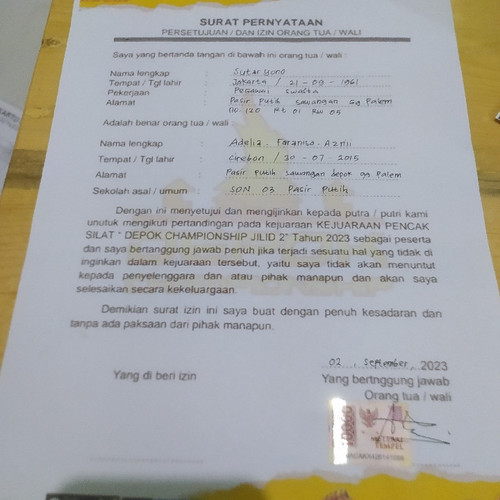 SURAT PERNYATAAN
PERSETUJUAN / DAN IZIN ORANG TUA / WALI
Saya yang bertanda tangan di bawah ini orang tua / wali
Nama lengkap : Sutariyono
Tempat / Tgl lahir : Jakarta / 21-09-1961
Pekerjaan : Pegawai swasta
Alamat : Pasir Putih, sawangan gg Palem
no. 120 Rt 01 Rw 04
Adalah benar orang tua / wali
Nama lengkap : Adelia Faranisa Azmii
Tempat / Tgl lahir : Cirebon / 20-07-2015
Alamat : Pasir putih sawangan depok gg Palem
Sekolah asal / umum : SDN 03 Pasir Putih
Dengan ini menyetujui dan mengijinkan kepada putra / putri kami
unutuk mengikuti pertandingan pada kejuaraan KEJUARAAN PENCAK
SILAT " DEPOK CHAMPIONSHIP JILID 2" Tahun 2023 sebagai peserta
dan saya bertanggung jawab penuh jika terjadi sesuatu hal yang tidak di
inginkan dalam kejuaraan tersebut, yaitu saya tidak akan menuntut
kepada penyelenggara dan atau pihak manapun dan akan saya
selesaikan secara kekeluargaan.
Demikian surat izin ini saya buat dengan penuh kesadaran dan
tanpa ada paksaan dari pihak manapun.
02, September, 2023
Yang di beri izin
Yang bertnggung jawab
Orang tua / wali
10000
METERAI
TEMPEL